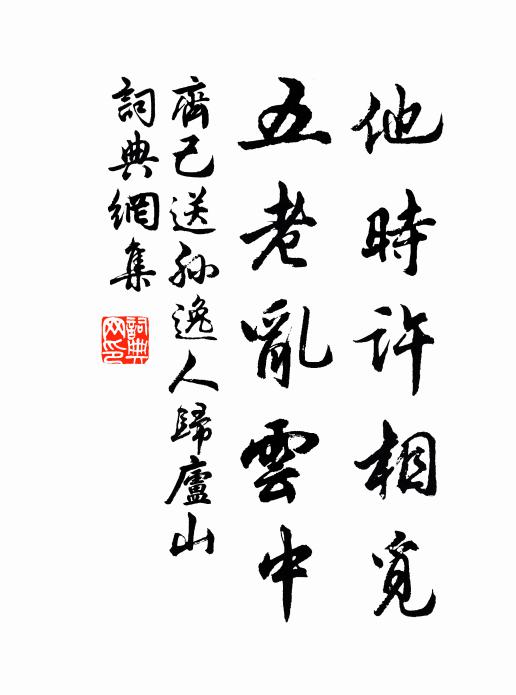 他時許相覓
五老亂雲中
齊己送孫逸人歸廬山
詞典網集
詞典
网印